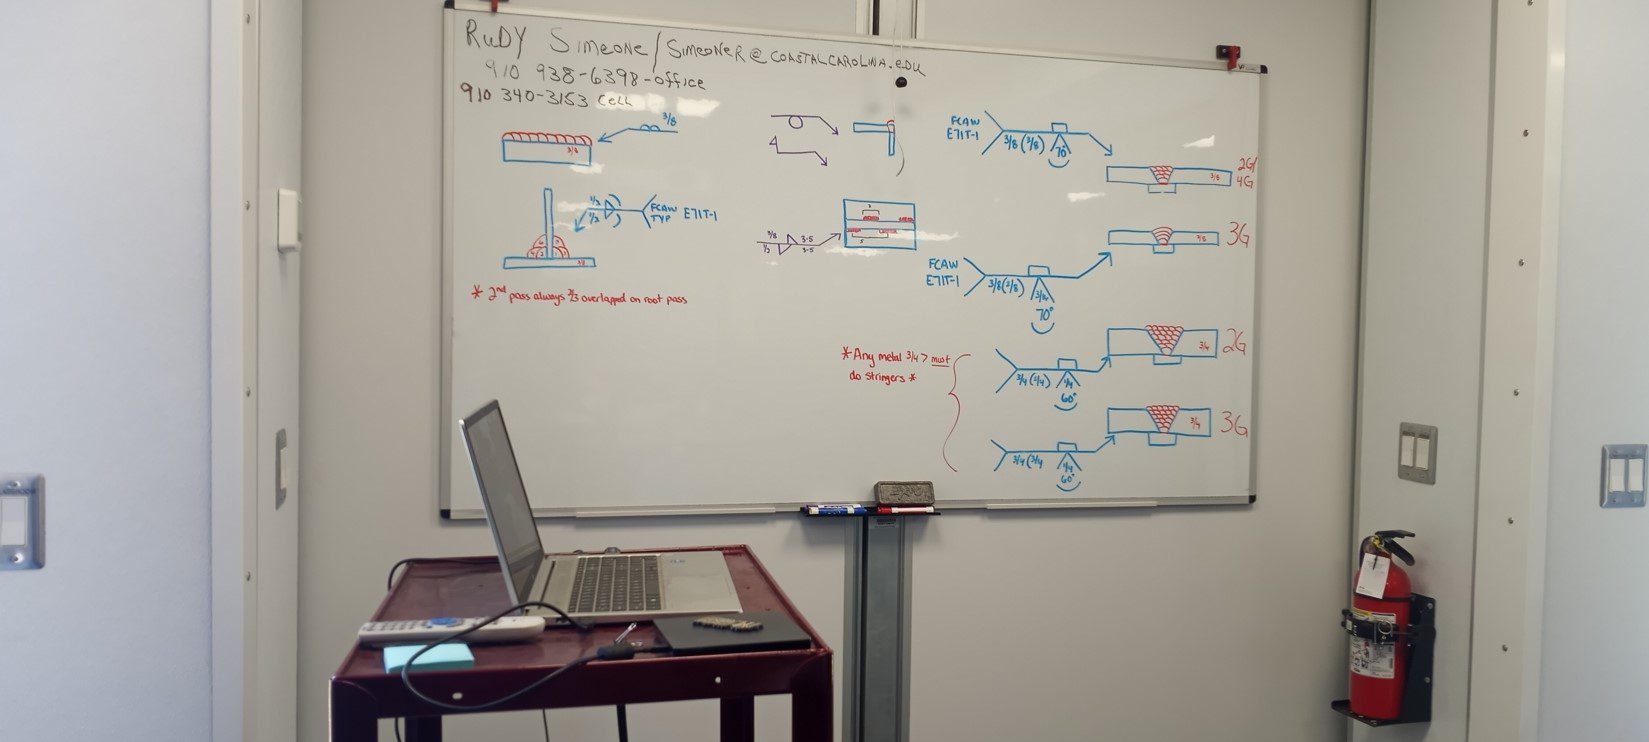 RUDY SIMEONE/SIMEONER@COASTALCAROLINA.EDU
910 938-6398-OFFICE
910 340-3153 CELL
3/8
3/8
1/2
1/2
FCAW
TYP E71T-1
* 2nd pass always 2/3 overlapped on root pass
3/8
1/2
3-5
3-5
5
FCAW
E71T-1
3/8 (3/8)
70°
3/8
2G/
4G
3/8
3G
FCAW
E71T-1
3/8(3/8)
70°
3/4
2G
*Any metal 3/4 > must
do stringers *
3/4(3/4)
1/4
60°
3/4
3G
3/4(3/4
1/4
60°